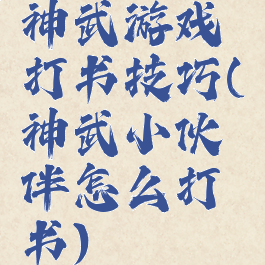 神武游戏
打书技巧(
神武小伙
伴怎么打
书)